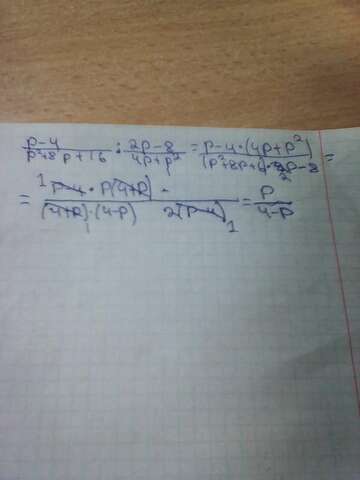 p-4/p²+8p+16 : 2p-8/4p+p² = p-4·(4p+p²)/(p²+8p+16)·2p-8 =
= p-4 · p(4+p) · /(4+p)·(4-p) 2(p-4) = p/4-p